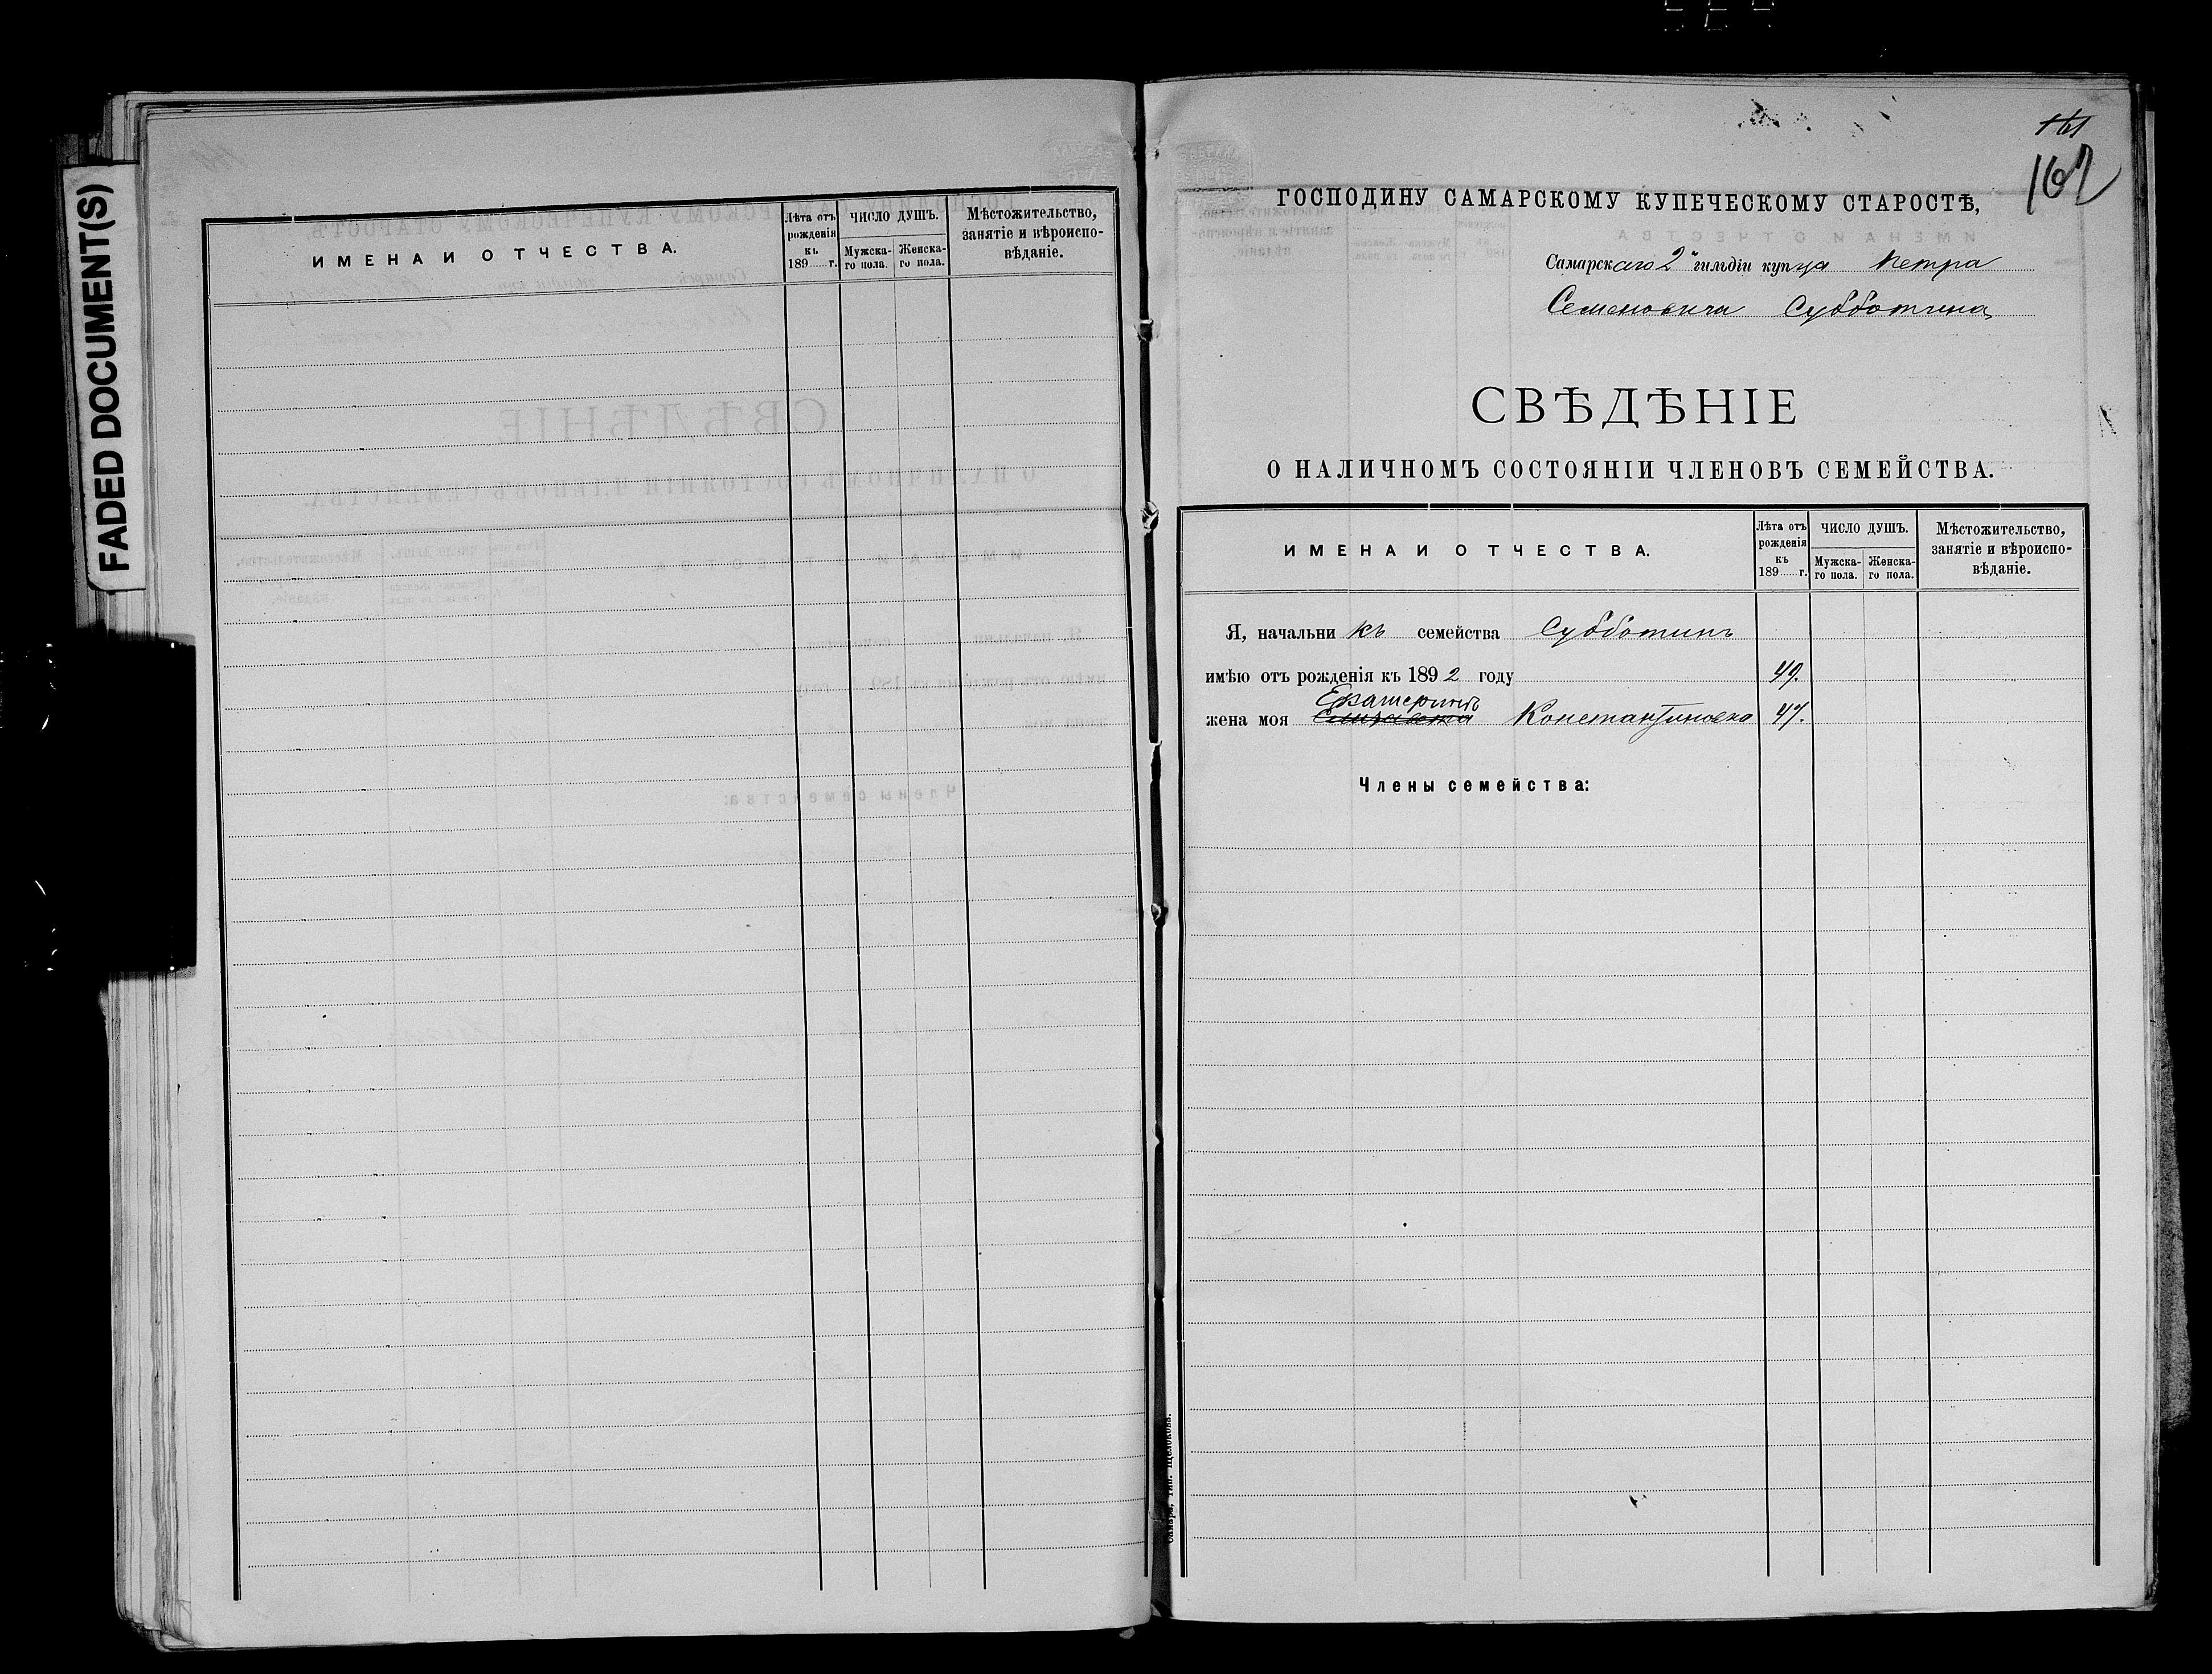 FADED DOCUMENT(S)
ИМЕНА И ОТЧЕСТВА.
Лѣта отъ рожденія къ 189 г.
ЧИСЛО ДУШЪ.
Мужска-го пола.
Женска-го пола.
Мѣстожительство, занятіе и вѣроиспо-вѣданіе.
161
162
ГОСПОДИНУ САМАРСКОМУ КУПЕЧЕСКОМУ СТАРОСТѢ,
Самарскаго 2й гильдіи купца Петра
Семеновича Субботина
СВѢДѢНІЕ
О НАЛИЧНОМЪ СОСТОЯНІИ ЧЛЕНОВЪ СЕМЕЙСТВА.
ИМЕНА И ОТЧЕСТВА.
Лѣта отъ рожденія къ 189 г.
ЧИСЛО ДУШЪ.
Мужска-го пола.
Женска-го пола.
Мѣстожительство, занятіе и вѣроиспо-вѣданіе.
Я, начальникъ семейства Субботинъ
имѣю отъ рожденія къ 1892 году 49.
Екатерина
жена моя Елизавета Константиновна 47.
Члены семейства:
Самара, Тип. Щелокова.